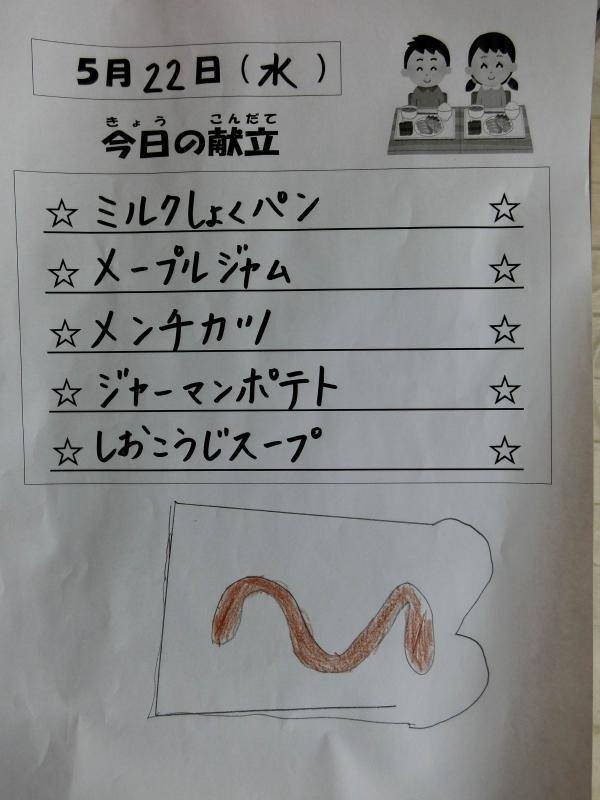 5月22日(水)
きょう こんだて
今日の献立
☆ ミルクしょくパン ☆
☆ メープルジャム ☆
☆ メンチカツ ☆
☆ ジャーマンポテト ☆
☆ しおこうじスープ ☆